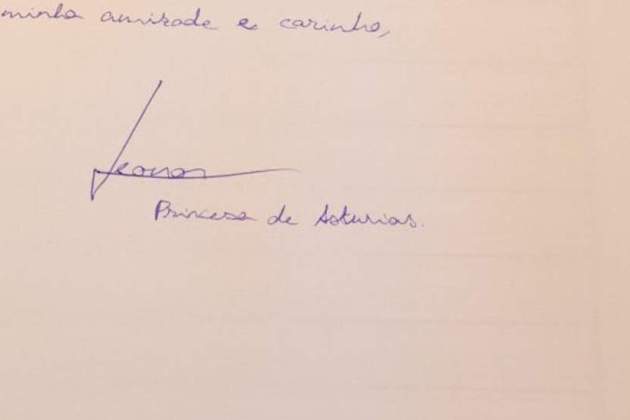 minha amizade e carinho,
Leonor
Princesa de Asturias.